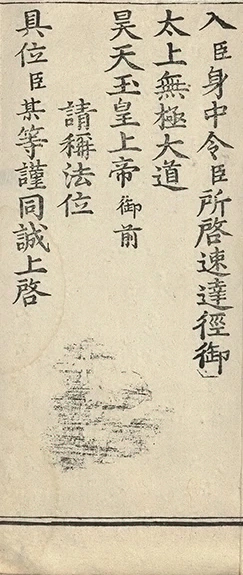 入臣身中令臣所啓速達徑御
太上無極大道
昊天玉皇上帝御前
請稱法位
具位臣某等謹同誠上啓